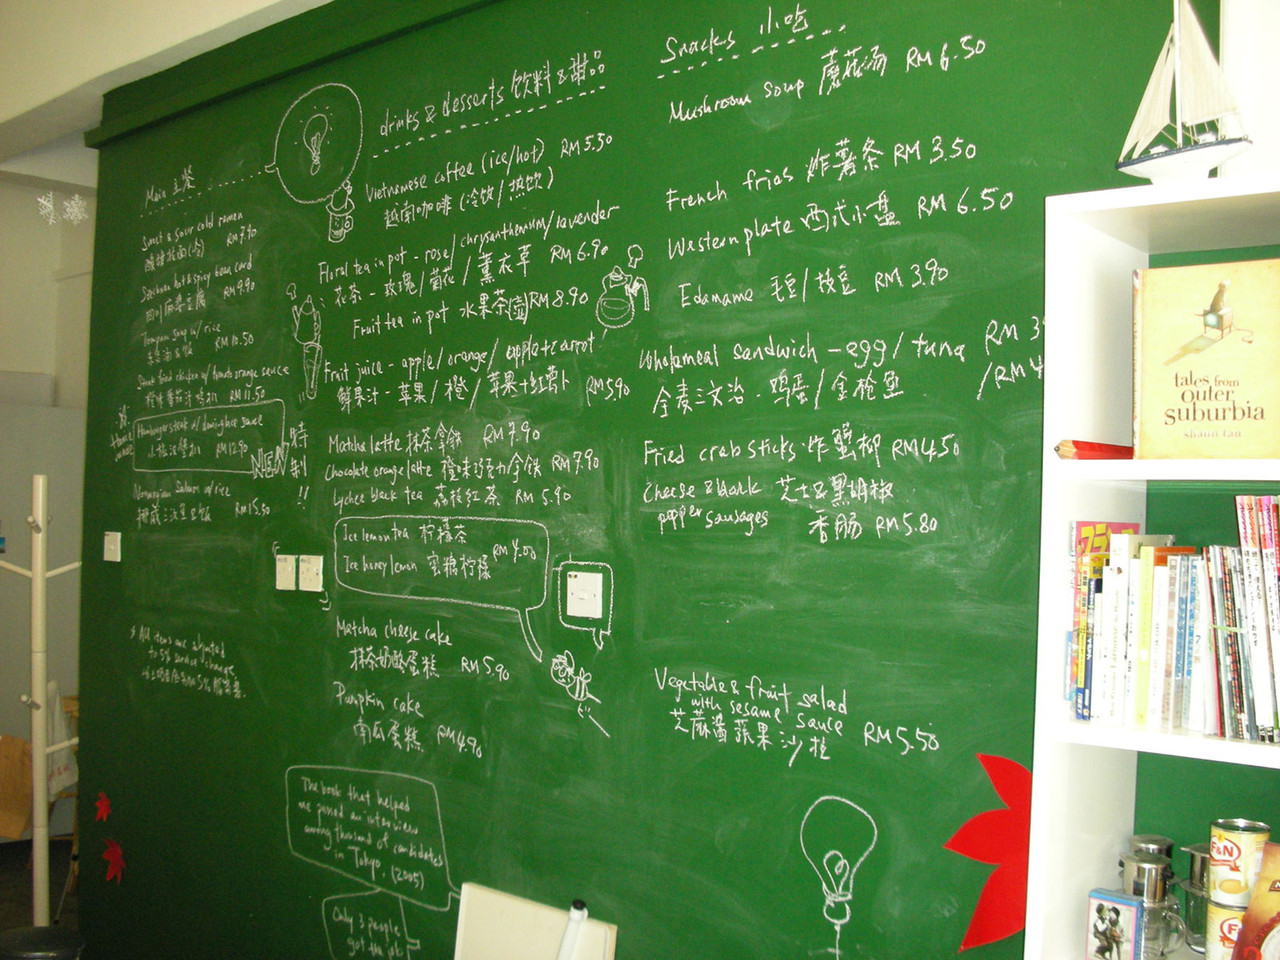 Main 主餐
Sweet & sour cold ramen
RM 7.90
Szechuan hot & spicy tau card
四川麻婆豆腐 RM 9.90
Tomyam soup w/ rice
RM 10.50
chicken w/ tomato orange sauce
RM 11.50
Hamburger steak w/ demiglace sauce
RM 12.90
NEW 特制!!
Norwegian Salmon w/ rice
挪威三文鱼饭 RM 15.50
* All items are adjusted
to 5% service charge.
drinks & desserts 饮料 & 甜品
Vietnamese coffee (ice/hot) RM 5.50
越南咖啡 (冷饮/热饮)
Floral tea in pot - rose/chrysanthemum/lavender
花茶 - 玫瑰/菊花/薰衣草 RM 6.90
Fruit tea in pot 水果茶(壶) RM 8.90
Fruit juice - apple/orange/apple+carrot
鲜果汁 - 苹果/橙/苹果+红萝卜 RM 5.90
Matcha latte 抹茶拿铁 RM 7.90
Chocolate orange latte 橙味巧克力拿铁 RM 7.90
Lychee black tea 荔枝红茶 RM 5.90
Ice lemon tea 柠檬茶
Ice honey lemon 蜜糖柠檬 RM 4.00
Matcha cheese cake
抹茶奶酪蛋糕 RM 5.90
Pumpkin cake
南瓜蛋糕 RM 4.90
The book that helped
me passed an interview
among thousand of candidates
in Tokyo. (2005)
Only 3 people
got the job
Snacks 小吃
Mushroom soup 蘑菇汤 RM 6.50
French fries 炸薯条 RM 3.50
Western plate 西式小盘 RM 6.50
Edamame 毛豆/枝豆 RM 3.90
Wholemeal sandwich - egg/tuna RM 3
全麦三文治 - 鸡蛋/金枪鱼 /RM 4
Fried crab sticks 炸蟹柳 RM 4.50
Cheese & black 芝士&黑胡椒
pepper sausages 香肠 RM 5.80
Vegetable & fruit salad
with sesame sauce
芝麻酱蔬果沙拉 RM 5.50
tales from
outer
suburbia
shaun tan
F&N
F&N